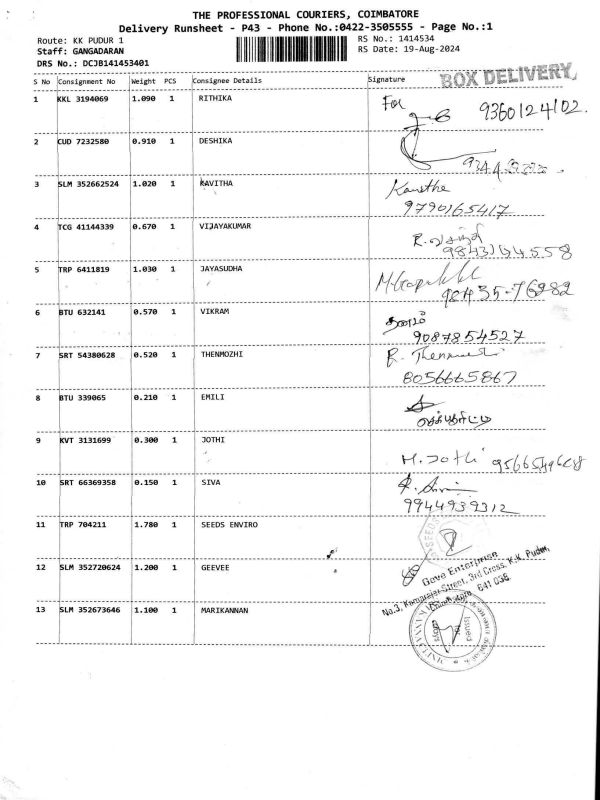 THE PROFESSIONAL COURIERS, COIMBATORE
Delivery Runsheet - P43 - Phone No.:0422-3505555 - Page No.:1
Route: KK PUDUR 1 RS No.: 1414534
Staff: GANGADARAN RS Date: 19-Aug-2024
DRS No.: DCJB141453401
BOX DELIVERY
S No Consignment No Weight PCS Consignee Details Signature
1 KKL 3194069 1.090 1 RITHIKA For 9360124102.
2 CUD 7232580 0.910 1 DESHIKA
3 SLM 352662524 1.020 1 KAVITHA Kavitha
9790165417
4 TCG 41144339 0.670 1 VIJAYAKUMAR
5 TRP 6411819 1.030 1 JAYASUDHA
6 BTU 632141 0.570 1 VIKRAM
9087854527
7 SRT 54380628 0.520 1 THENMOZHI
8056665867
8 BTU 339065 0.210 1 EMILI
9 KVT 3131699 0.300 1 JOTHI M. Jothi
10 SRT 66369358 0.150 1 SIVA
9944939312
11 TRP 704211 1.780 1 SEEDS ENVIRO SEEDS
12 SLM 352720624 1.200 1 GEEVEE
Enterprise
No.3, Kamarajar Street, 3rd Cross, K.K. Pudur,
Coimbatore 641 038.
13 SLM 352673646 1.100 1 MARIKANNAN
Issued
for